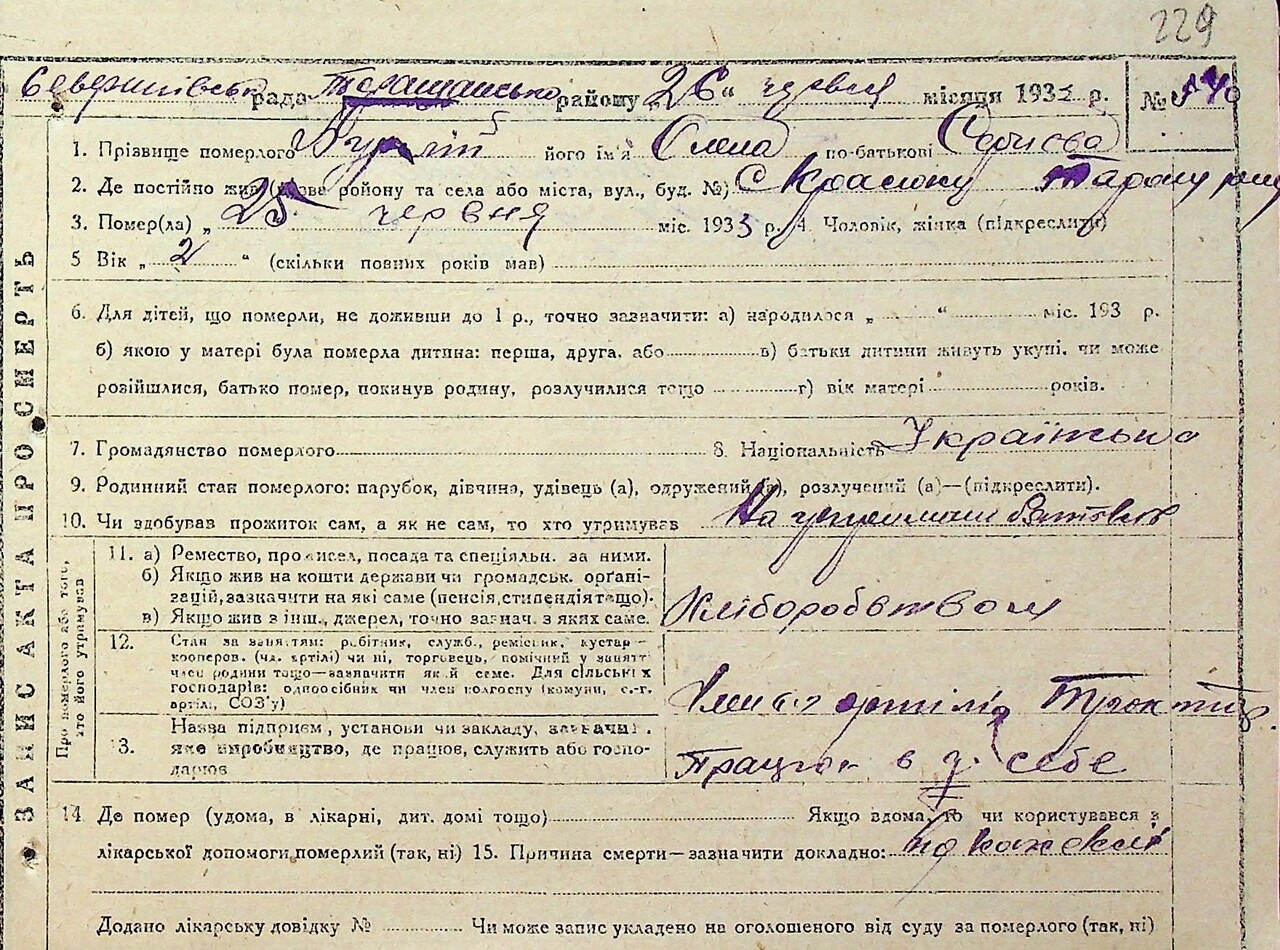 229
рада район
"26" червня місяця 193 р. №
1. Прізвище померлого його ім'я Олена по-батькові
2. Де постійно жив району та села або міста, вул., буд. №) с
3. Помер(ла) „ 25 червня міс. 1933 р. 4. Чоловік, жінка (підкреслити)
5 Вік „ 2 " (скільки повних років мав)
6. Для дітей, що померли, не доживши до 1 р., точно зазначити: а) народилося „ " міс. 193 р.
б) якою у матері була померла дитина: перша, друга, або в) батьки дитини живуть укупі, чи може
розійшлися, батько помер, покинув родину, розлучилися тощо г) вік матері років.
7. Громадянство померлого 8. Національність Українська
9. Родинний стан померлого: парубок, дівчина, удівець (а), одружений (а), розлучений (а)—(підкреслити).
10. Чи здобував прожиток сам, а як не сам, то хто утримував На
ЗАПИС АКТА ПРО СМЕРТЬ
Про померлого або того, хто його утримував
11. а) Ремество, промисел, посада та спеціяльн. за ними.
б) Якщо жив на кошти держави чи громадськ. орґані-
зацій, зазначити на які саме (пенсія, стипендія тощо).
в) Якщо жив з інш., джерел, точно зазнач. з яких саме.
Хліборобством
12. Стан за занятям: робітник, служб., ремісник, кустар—
кооперов. (чл. артілі) чи ні, торговець, помічний у занятті
член родини тощо—зазначити який саме. Для сільських
господарів: одноосібник чи член колгоспу (комуни, с.-г.
артілі, СОЗ'у)
артілі
13. Назва підприєм, установи чи закладу, зазначит.
яке виробництво, де працює, служить або госпо-
дарює
в себе
14. Де помер (удома, в лікарні, дит. домі тощо) Якщо вдома, то чи користувався з
лікарської допомоги померлий (так, ні) 15. Причина смерти—зазначити докладно:
Додано лікарську довідку № Чи може запис укладено на оголошеного від суду за померлого (так, ні)